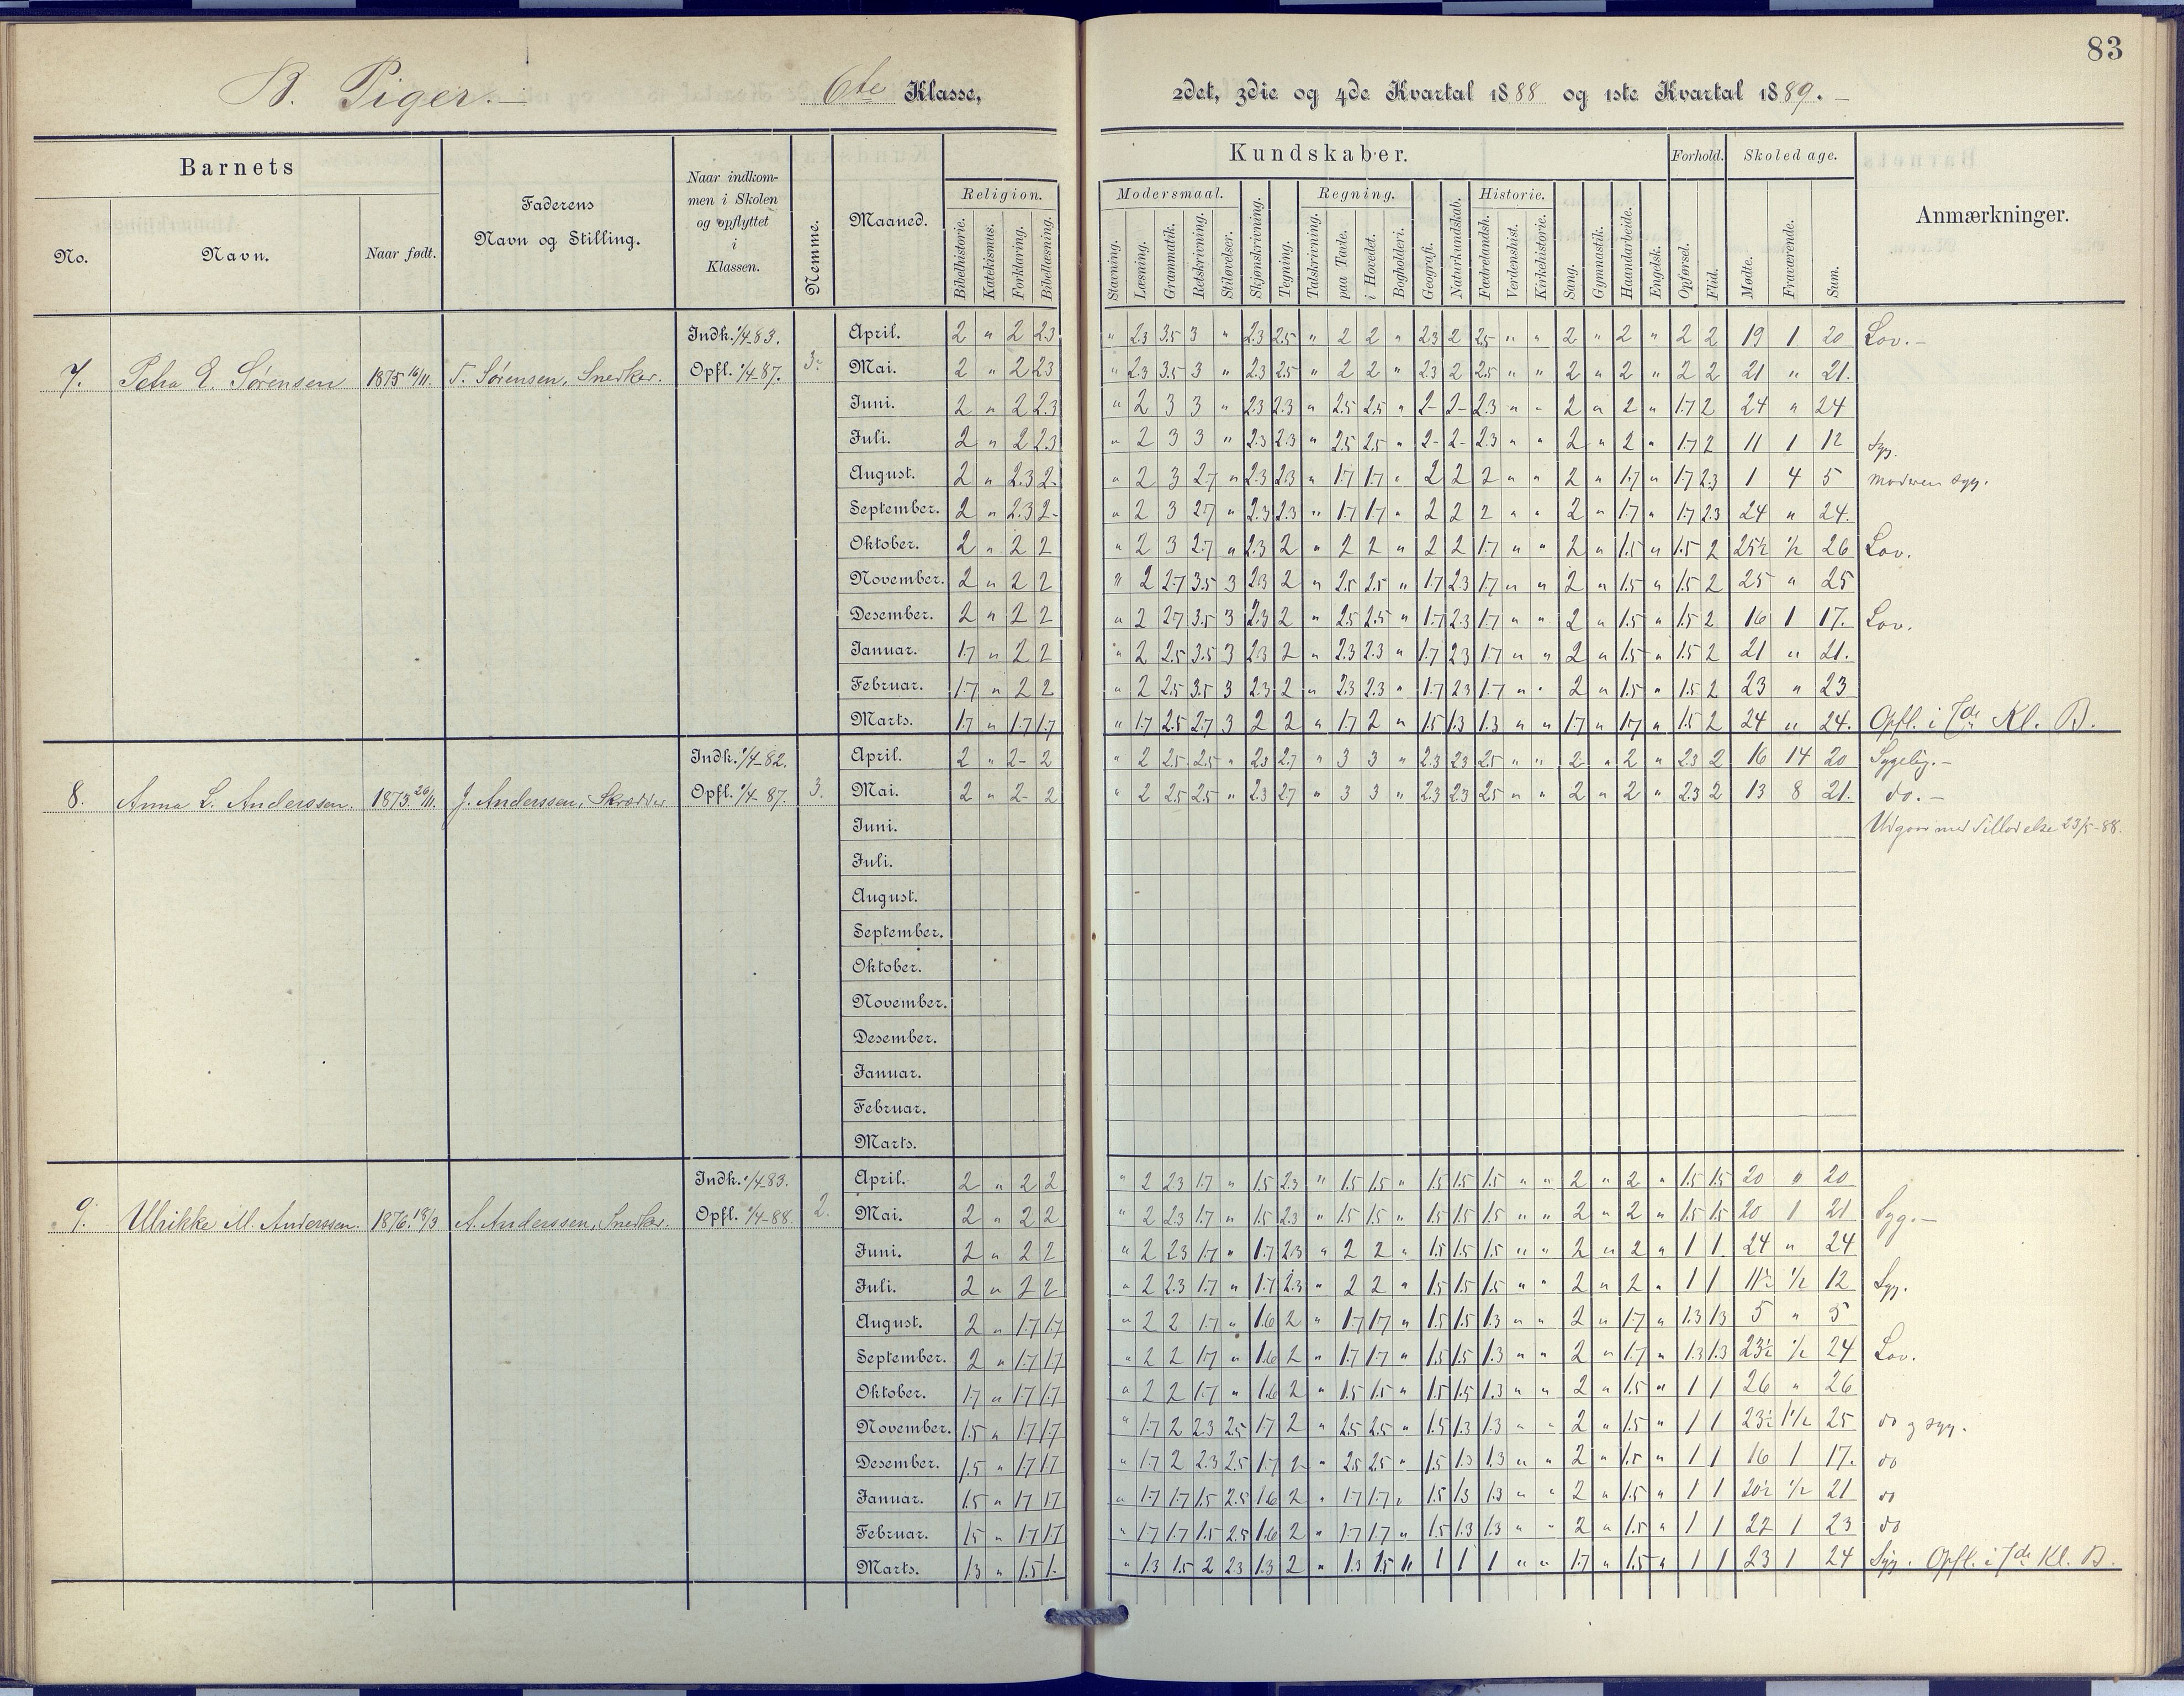 83
B. Piger. 6te Klasse, 2det, 3die og 4de Kvartal 1888 og 1ste Kvartal 1889.
Barnets
No.
Navn.
Naar født.
Faderens
Navn og Stilling.
Naar indkom-
men i Skolen
og opflyttet
i
Klassen.
Nemme.
Maaned.
Religion.
Bibelhistorie. Katekismus. Forklaring. Bibellæsning.
Kundskaber.
Modersmaal.
Stavning. Læsning. Grammatik. Retskrivning. Stiløvelser.
Skjønskrivning. Tegning.
Regning.
Talskrivning. paa Tavle. i Hovedet. Bogholderi.
Geografi. Naturkundskab.
Historie.
Fædrelandsh. Verdenshist. Kirkehistorie.
Sang. Gymnastik. Haandarbeide. Engelsk.
Forhold.
Opførsel. Flid.
Skoledage.
Mødte. Fraværende. Sum.
Anmærkninger.
7. Petra E. Sørensen 1875 16/11. T. Sørensen, Snedker. Indk. 1/4 83. Opfl. 1/4 87. 3.
April. 2 " 2 2.3 " 2.3 3.5 3 " 2.3 2.5 " 2 2 " 2.3 2 2.5 " " 2 " 2 " 2 2 19 1 20 Lov.-
Mai. 2 " 2 2.3 " 2.3 3.5 3 " 2.3 2.5 " 2 2 " 2.3 2 2.5 " " 2 " 2 " 2 2 21 " 21.
Juni. 2 " 2 2.3 " 2 3 3 " 2.3 2.3 " 2.5 2.5 " 2- 2- 2.3 " " 2 " 2 " 1.7 2 24 " 24
Juli. 2 " 2 2.3 " 2 3 3 " 2.3 2.3 " 2.5 2.5 " 2- 2- 2.3 " " 2 " 2 " 1.7 2 11 1 12 Syg.
August. 2 " 2.3 2- " 2 3 2.7 " 2.3 2.3 " 1.7 1.7 " 2 2 2 " " 2 " 1.7 " 1.7 2.3 1 4 5 Moderen syg.
September. 2 " 2.3 2- " 2 3 2.7 " 2.3 2.3 " 1.7 1.7 " 2 2 2 " " 2 " 1.7 " 1.7 2.3 24 " 24.
Oktober. 2 " 2 2 " 2 3 2.7 " 2.3 2 " 2 2 " 2 2 1.7 " " 2 " 1.5 " 1.5 2 25½ ½ 26 Lov.
November. 2 " 2 2 " 2 2.7 3.5 3 2.3 2 " 2.5 2.5 " 1.7 2.3 1.7 " " 2 " 1.5 " 1.5 2 25 " 25
Desember. 2 " 2 2 " 2 2.7 3.5 3 2.3 2 " 2.5 2.5 " 1.7 2.3 1.7 " " 2 " 1.5 " 1.5 2 16 1 17. Lov.
Januar. 1.7 " 2 2 " 2 2.5 3.5 3 2.3 2 " 2.3 2.3 " 1.7 2.3 1.7 " " 2 " 1.5 " 1.5 2 21 " 21.
Februar. 1.7 " 2 2 " 2 2.5 3.5 3 2.3 2 " 2.3 2.3 " 1.7 2.3 1.7 " " 2 " 1.5 " 1.5 2 23 " 23
Marts. 1.7 " 1.7 1.7 " 1.7 2.5 2.7 3 2 2 " 1.7 2 " 1.5 1.3 1.3 " " 1.7 " 1.7 " 1.5 2 24 " 24. Opfl. i 7de Kl. B.
8. Anna L. Anderssen. 1873. 26/11. J. Anderssen, Skrædder. Indk. 1/4 82. Opfl. 1/4 87. 3.
April. 2 " 2- 2 " 2 2.5 2.5 " 2.3 2.7 " 3 3 " 2.3 2.3 2.5 " " 2 " 2 " 2.3 2 16 14 20 Sygelig.-
Mai. 2 " 2- 2 " 2 2.5 2.5 " 2.3 2.7 " 3 3 " 2.3 2.3 2.5 " " 2 " 2 " 2.3 2 13 8 21. do.-
Juni. Udgaar med Tilladelse 23/5-88.
Juli.
August.
September.
Oktober.
November.
Desember.
Januar.
Februar.
Marts.
9. Ulrikke M. Anderssen. 1876. 18/3 A. Anderssen, Snedker. Indk. 1/4 83. Opfl. 1/4 88. 2.
April. 2 " 2 2 " 2 2.3 1.7 " 1.5 2.3 " 1.5 1.5 " 1.5 1.5 1.5 " " 2 " 2 " 1.5 1.5 20 " 20
Mai. 2 " 2 2 " 2 2.3 1.7 " 1.5 2.3 " 1.5 1.5 " 1.5 1.5 1.5 " " 2 " 2 " 1.5 1.5 20 1 21 Syg.-
Juni. 2 " 2 2 " 2 2.3 1.7 " 1.7 2.3 " 2 2 " 1.5 1.5 1.5 " " 2 " 2 " 1 1. 24 " 24
Juli. 2 " 2 2 " 2 2.3 1.7 " 1.7 2.3 " 2 2 " 1.5 1.5 1.5 " " 2 " 2 " 1 1 11½ ½ 12 Syg.
August. 2 " 1.7 1.7 " 2 2 1.7 " 1.6 2 " 1.7 1.7 " 1.5 1.5 1.3 " " 2 " 1.7 " 1.3 1.3 5 " 5
September. 2 " 1.7 1.7 " 2 2 1.7 " 1.6 2 " 1.7 1.7 " 1.5 1.5 1.3 " " 2 " 1.7 " 1.3 1.3 23½ ½ 24 Lov.
Oktober. 1.7 " 1.7 1.7 " 2 2 1.7 " 1.6 2 " 1.5 1.5 " 1.5 1.5 1.3 " " 2 " 1.5 " 1 1 26 " 26
November. 1.5 " 1.7 1.7 " 1.7 2 2.3 2.5 1.7 2 " 2.5 2.5 " 1.5 1.3 1.3 " " 2 " 1.5 " 1 1 23½ 1½ 25 do og syg.
Desember. 1.5 " 1.7 1.7 " 1.7 2 2.3 2.5 1.7 2 " 2.5 2.5 " 1.5 1.3 1.3 " " 2 " 1.5 " 1 1 16 1 17. do
Januar. 1.5 " 1.7 1.7 " 1.7 1.7 1.5 2.5 1.6 2 " 1.7 1.7 " 1.5 1.3 1.3 " " 2 " 1.5 " 1 1 20½ ½ 21 do
Februar. 1.5 " 1.7 1.7 " 1.7 1.7 1.5 2.5 1.6 2 " 1.7 1.7 " 1.5 1.3 1.3 " " 2 " 1.5 " 1 1 22 1 23 do
Marts. 1.3 " 1.5 1. " 1.3 1.5 2 2.3 1.3 2 " 1.3 1.5 " 1 1 1 " " 1.7 " 1.5 " 1 1 23 1 24 Syg. Opfl. i 7de Kl. B.